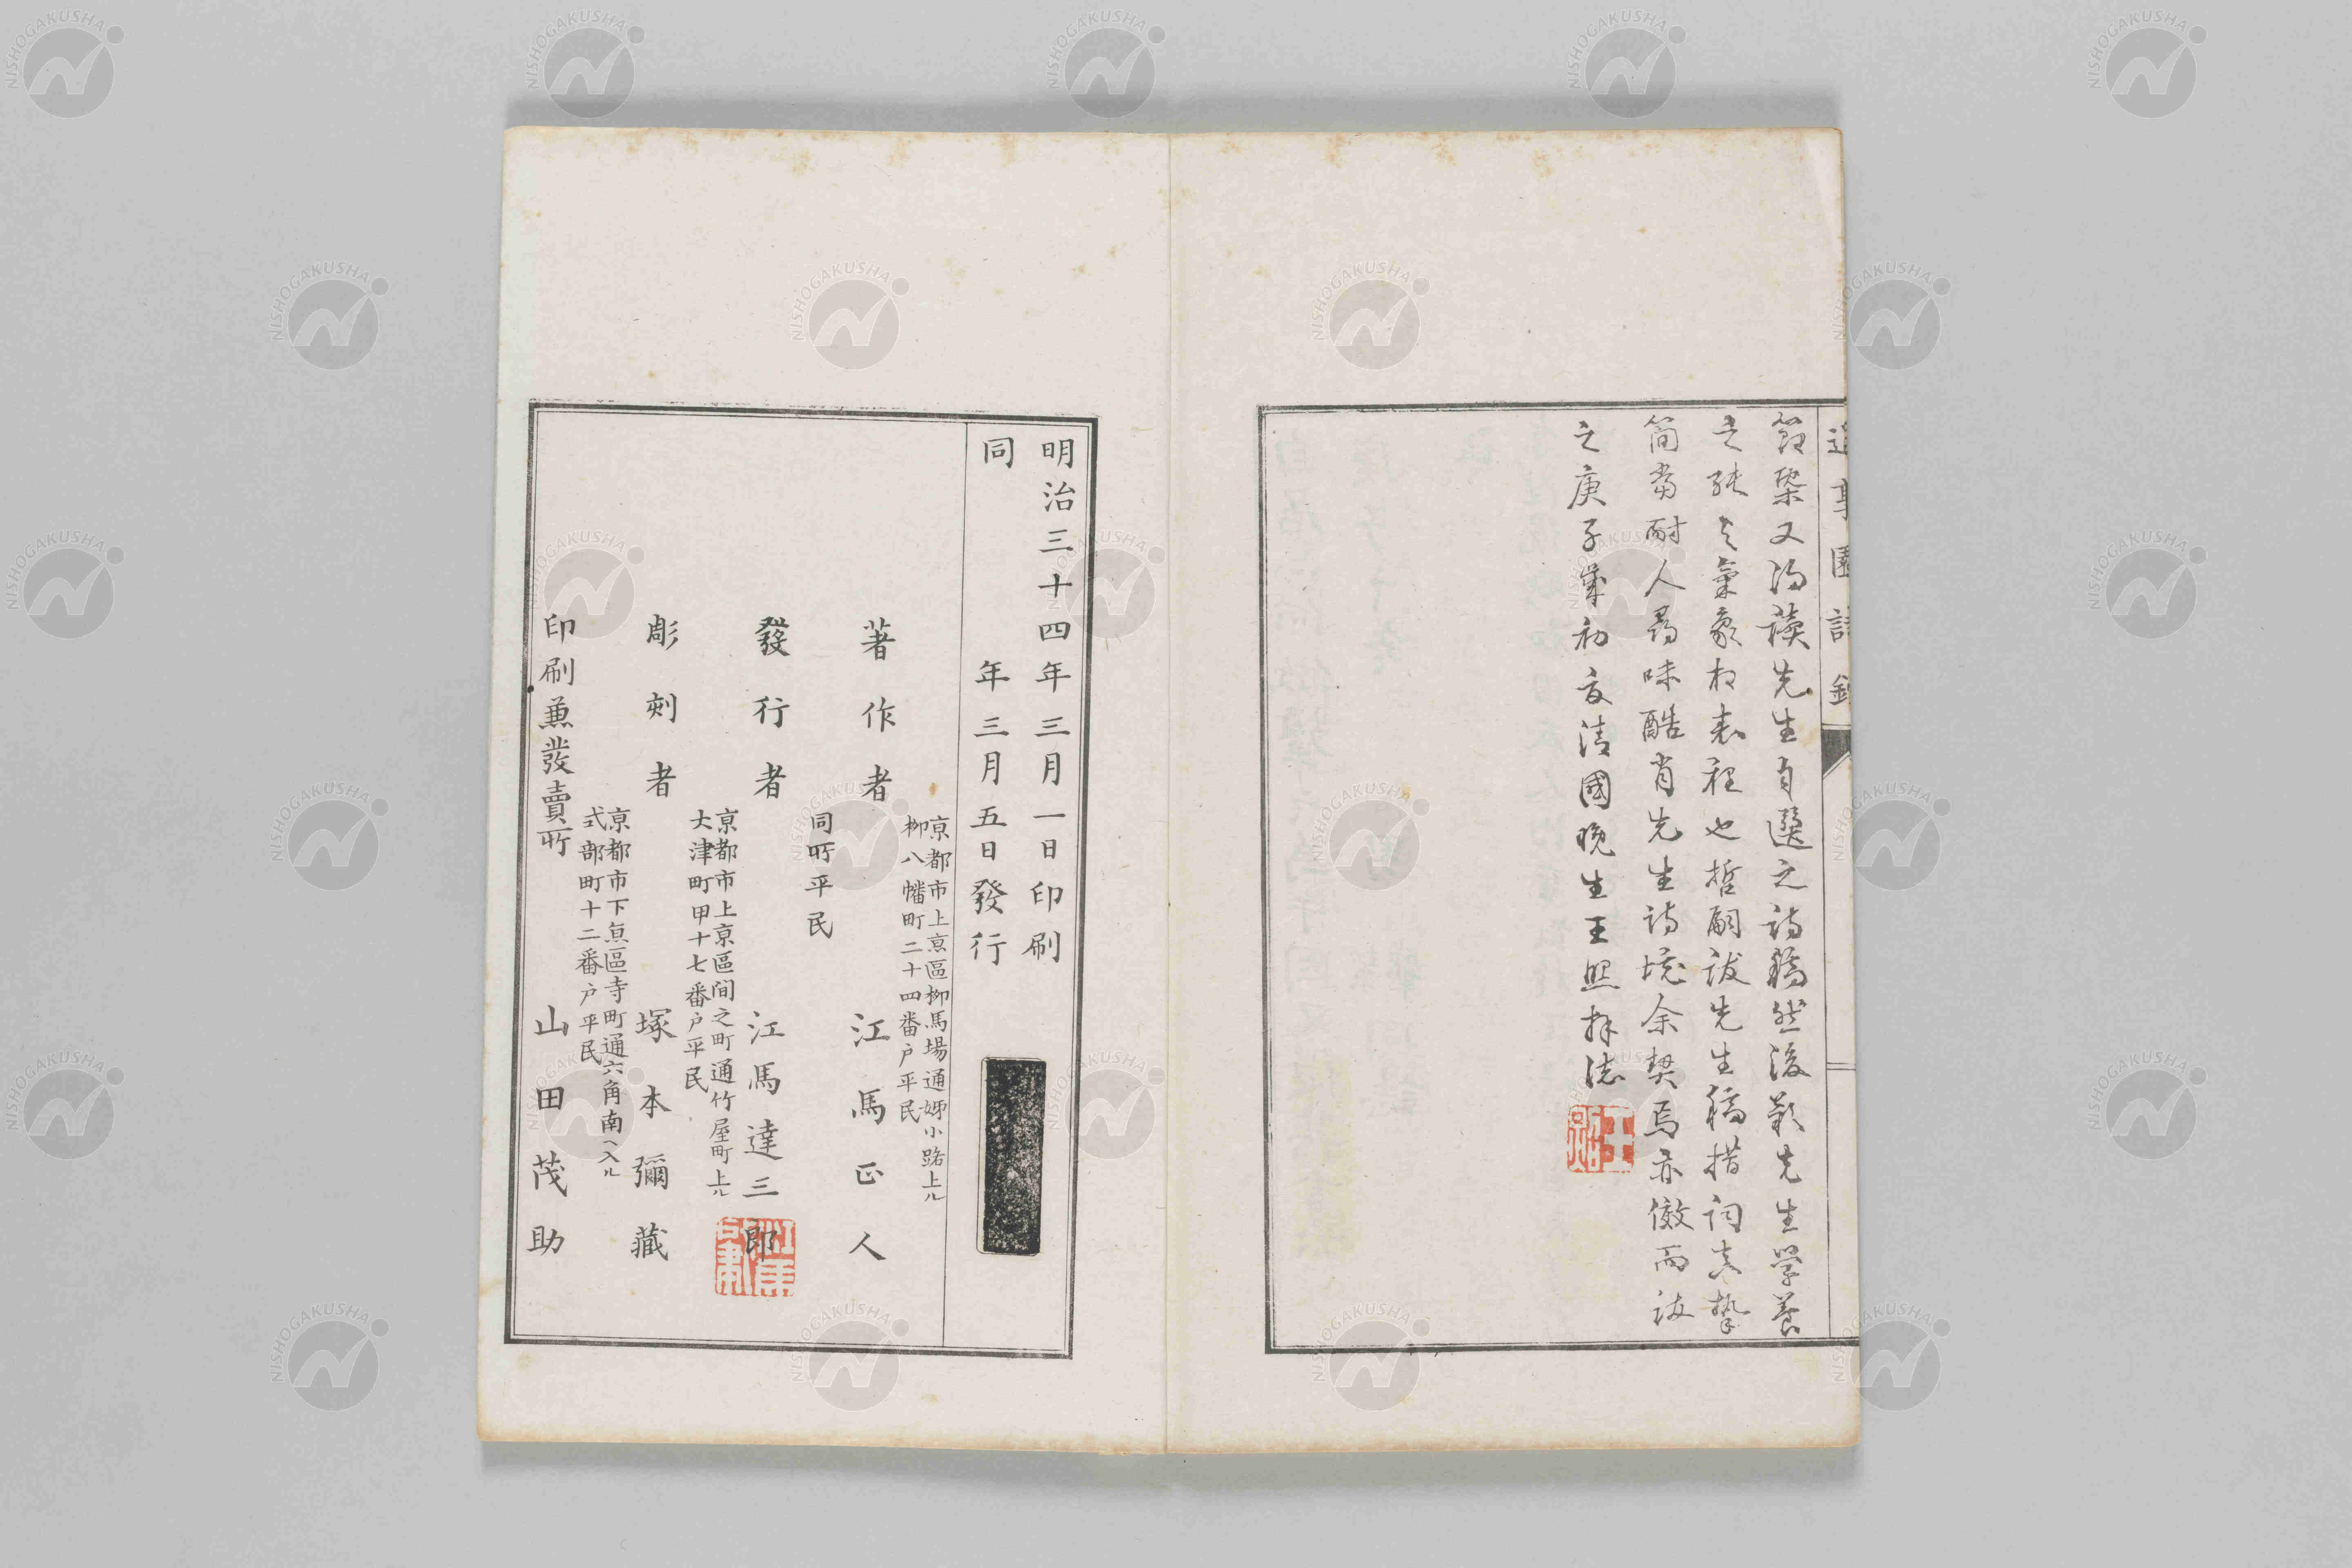 節槩又得讀先生自選之詩稿然後歎先生學養
之純之氣象相表裡也哲嗣詠先生稿措詞真摯
簡當耐人尋味酷肖先生詩境余契焉亦傚而詠
之庚子歲初夏清國晚生王照拜誌
王照
明治三十四年三月一日印刷
同年三月五日發行
京都市上京區柳馬場通姊小路上ル
柳八幡町二十四番户平民
著作者 江馬正人
同所平民
發行者 江馬達三郎
京都市上京區间之町通竹屋町上ル
大津町甲十七番户平民
彫刻者 塚本彌藏
京都市下京區寺町通六角南ヘ入ル
式部町十二番户平民
印刷兼發賣所 山田茂助
NISHOGAKUSHA